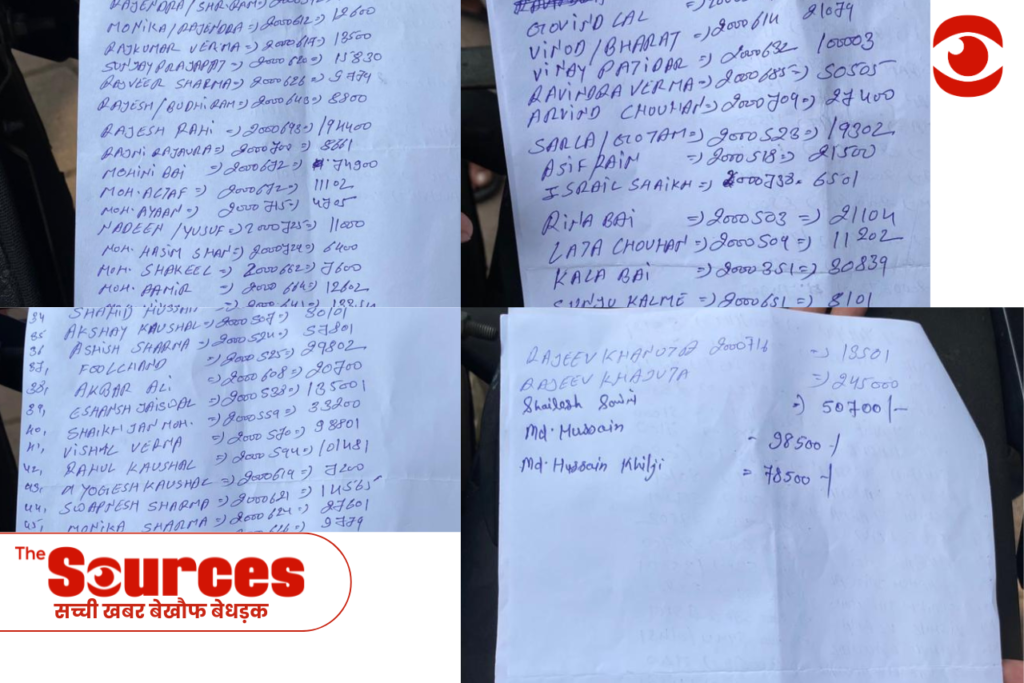 RAJENDRA / SHR.RAM =>
MONIKA / RAJENDRA => 2000612 => 12600
RAJKUMAR VERMA => 2000617 => 13500
SUNJAY PRAJAPAT => 2000620 => 15830
RAJVEER SHARMA => 2000626 => 5779
RAJESH / BUDHIRAM => 2000643 => 8800
RAJESH RAHI => 2000693 => 194400
RAJNI RAJAURA => 2000700 => 8661
MOHINI BAI => 2000672 => 74900
MOH. ALTAF => 2000672 => 11102
MOH. AYAAN => 2000715 => 4705
NADEEM / YUSUF => 2000725 => 11000
MOH. HASIM SHAH => 2000729 => 6400
MOH. SHAKEEL => 2000652 => 7600
MOH. PAMIR => 2000643 => 12602
GOVIND LAL
VINOD / BHARAT => 2000614 21079
VINAY PATIDAR => 2000632 100003
RAVINDRA VERMA => 2000685 => 50505
ARVIND CHOUHAN => 2000709 => 27400
SARLA / GOTAM => 2000523 => 19302
ASIF RAIN => 2000518 => 21500
ISRAIL SHAIKH => 2000738. 6501
RINA BAI => 2000503 => 21104
LATA CHOUHAN => 2000509 => 11202
KALA BAI => 2000351 => 30839
SUNJU KALME => 2000651 => 8101
34 SHAHID HUSSAIN
35 AKSHAY KAUSHAL => 2000507 => 30101
36 ASHISH SHARMA => 2000524 => 57801
37, FOOLCHAND => 2000525 => 29802
38, AKBAR ALI => 2000608 => 20700
39, ESHANSH JAISWAL => 2000538 => 135001
40, SHAIKH JAN MOH. => 2000559 => 33200
41, VISHAL VERMA => 2000570 => 98801
42, RAHUL KAUSHAL => 2000594 => 101481
43, YOGESH KAUSHAL => 2000619 => 7200
44, SWAPNESH SHARMA => 2000621 => 14565
45, MONIKA SHARMA => 2000624 => 27601
RAJEEV KHANUJA 2000716 => 13501
RAJEEV KHANUJA => 245000
Shailesh Soni => 50700/-
Md. Hussain = 98500-/
Md. Hussain Khilji = 78500-/
The
Sources
सच्ची खबर बेखौफ बेधड़क